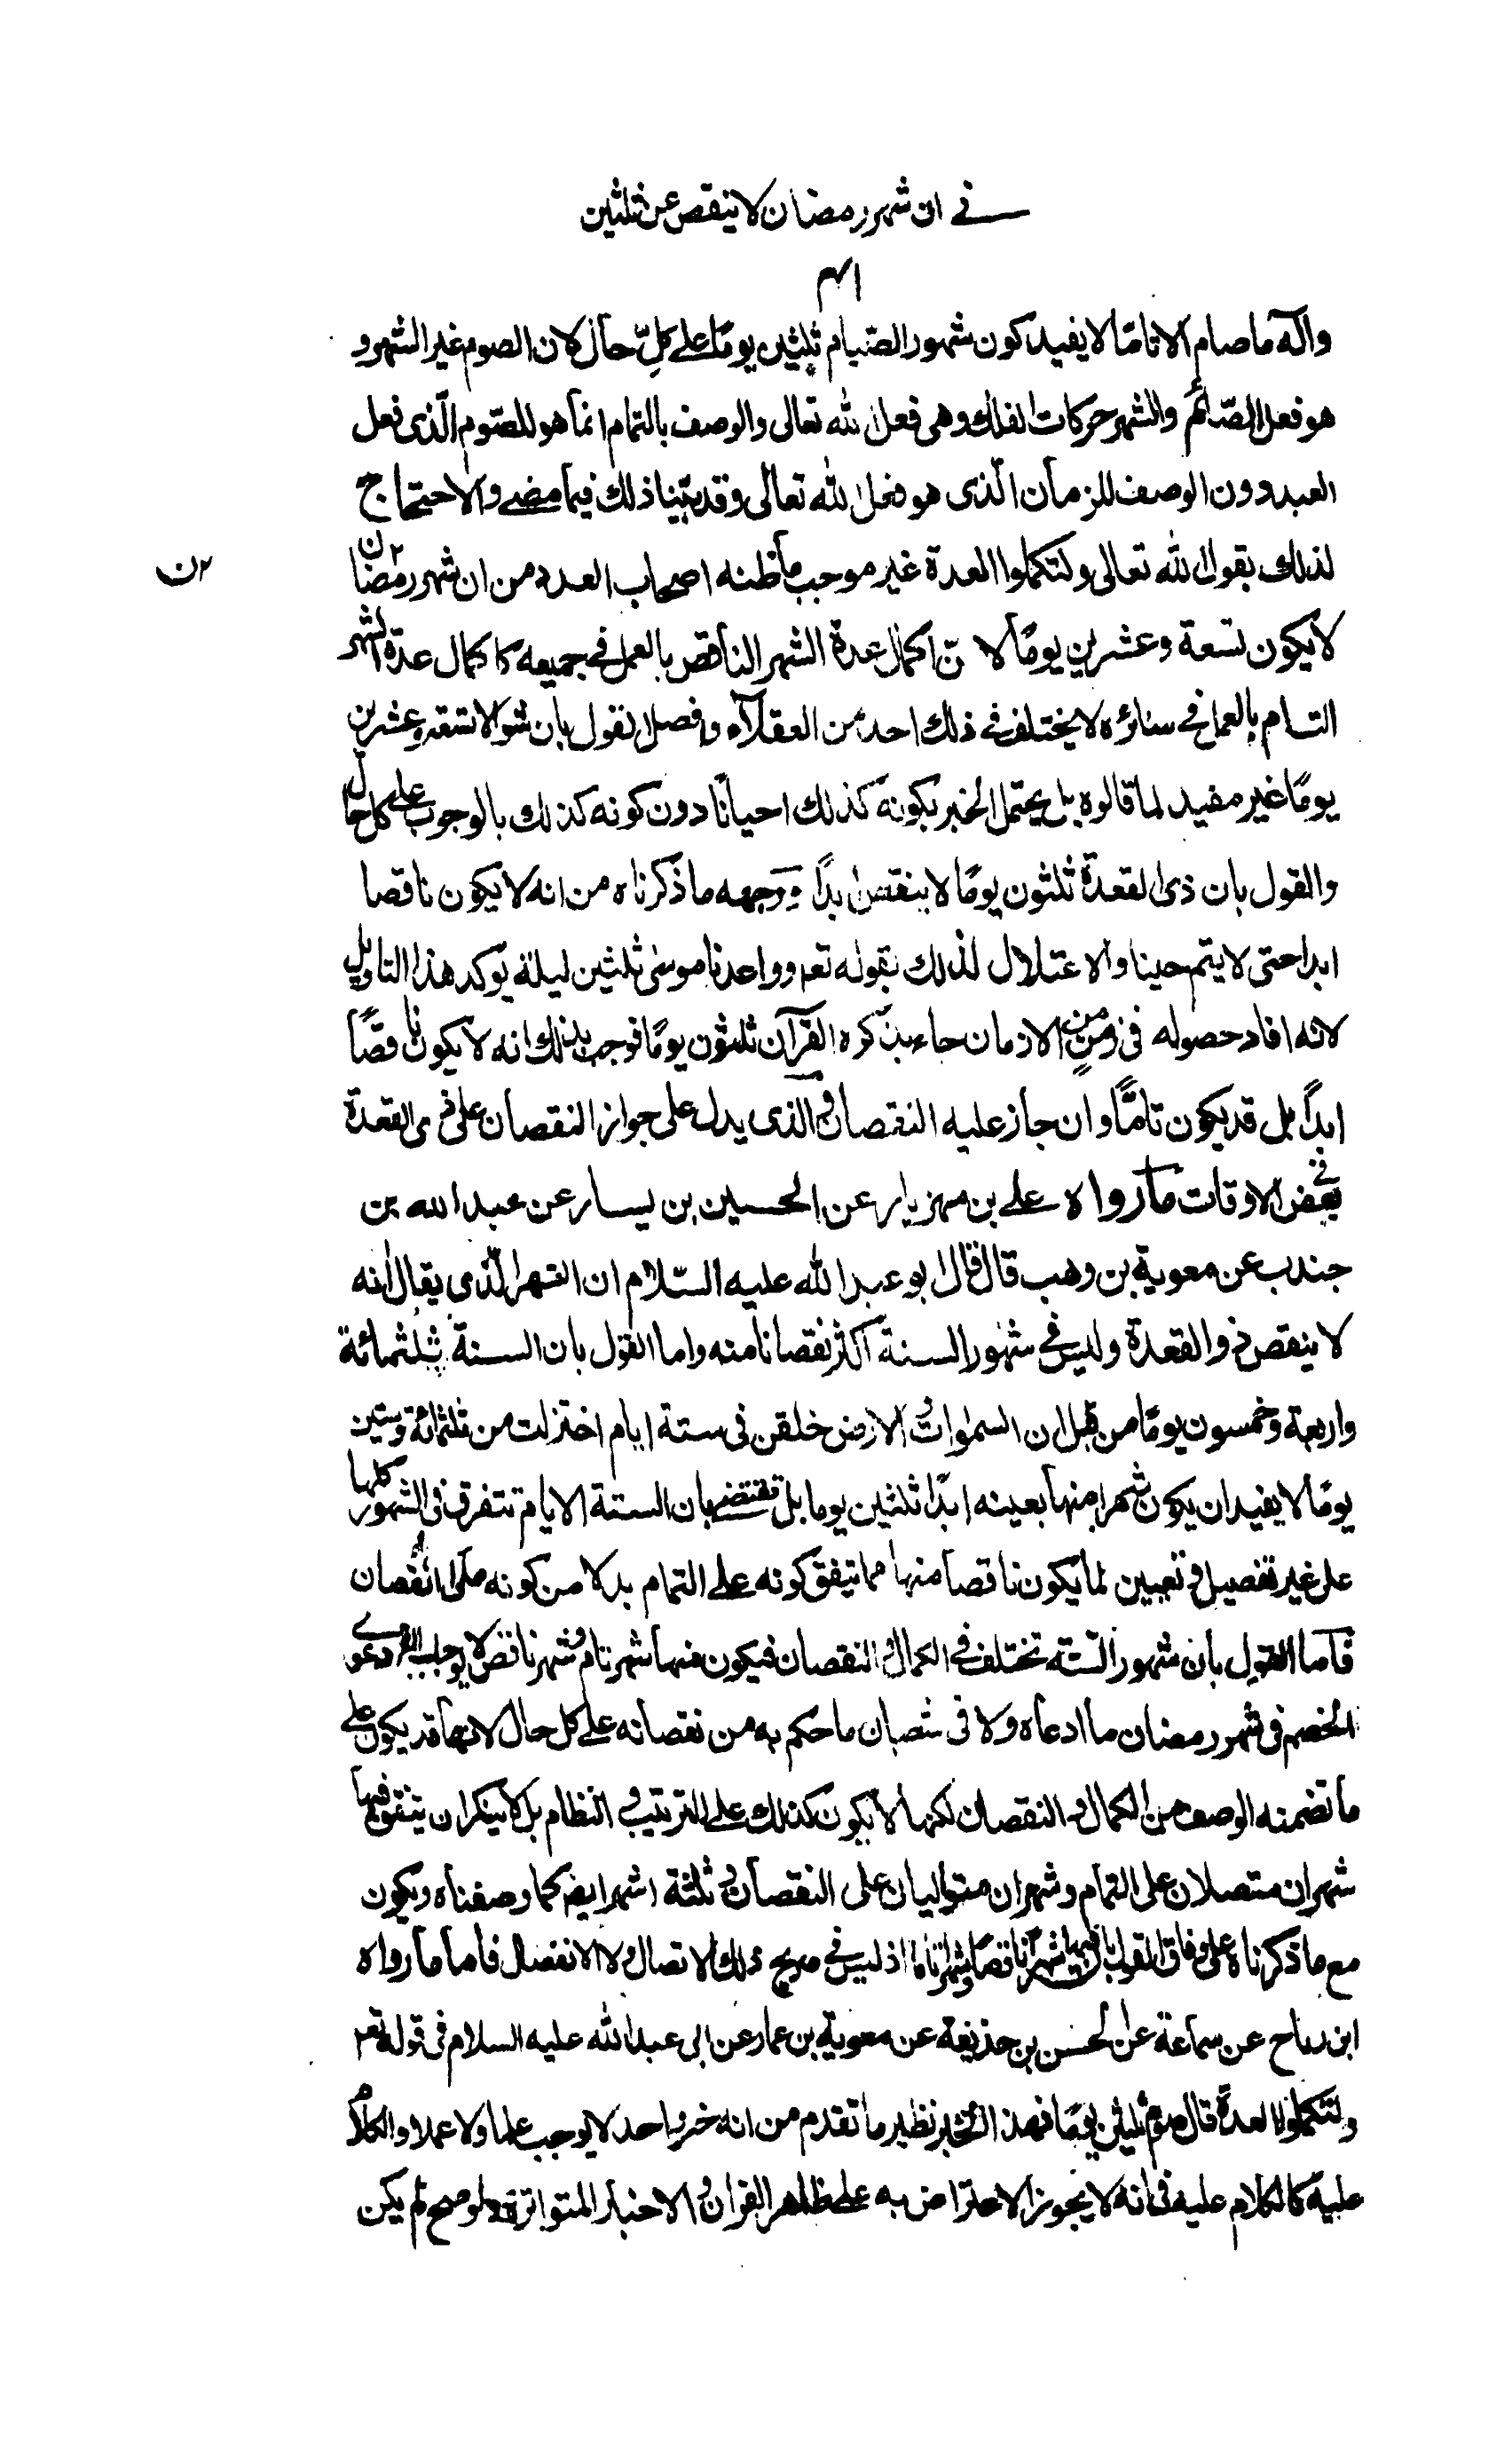 في ان شهر رمضان لا ينقص عن ثلثين
وآله ما صام الا تاما لا يفيد كون شهور الصيام ثلثين يومًا على كلّ حال لان الصوم غير الشهر و
هو فعل الصّائم والشهر حركات الفلك وهى فعل الله تعالى والوصف بالتمام انما هو للصّوم الّذى فعل
العبد دون الوصف للزمان الّذى هو فعل الله تعالى وقد بيّنا ذلك فيما مضى والاحتجاج
لذلك بقول الله تعالى ولتكملوا العدة غير موجب ما ظنه اصحاب العدد من ان شهر رمضان
٢ن
لا يكون تسعة وعشرين يومًا لانّ اكمال عدة الشهر الناقص بالعمل في جميعه كاكمال عدة الشهر
التام بالعمل في سائره لا يختلف في ذلك احد من العقلاء و فصل القول بان شوالا تسعة وعشرين
يومًا غير مفيد لما قالوه بل يحتمل الخبر بكونه كذلك احيانًا دون كونه كذلك بالوجوب على كل حال
والقول بان ذى القعدة ثلثون يومًا لا ينقص ابدًا ووجهه ما ذكرناه من انه لا يكون ناقصا
ابدا حتى لا يتم حينا والاعتلال لذلك بقوله تعم وواعدنا موسى ثلثين ليلة يوكد هذا التاويل
لانه افاد حصوله فى زمن من الازمان جاء بذكره القرآن ثلثون يومًا فوجب بذلك انه لا يكون ناقصًا
ابدًا بل قد يكون تامًّا وان جاز عليه النقصان و الذى يدل على جواز النقصان على ذى القعدة
في بعض الاوقات ما رواه على بن مهزيار عن الحسين بن يسار عن عبد الله بن
جندب عن معوية بن وهب قال قال ابو عبد الله عليه السّلام ان الشهر الّذى يقال انه
لا ينقص ذو القعدة وليس في شهور السنة اكثر نقصانا منه واما القول بان السنة ثلثمائة
واربعة وخمسون يومًا من قبل ان السموات و الارض خلقن فى ستة ايام اختزلت من ثلثمائة وستين
يومًا لا يفيد ان يكون شهرا منها بعينه ابدًا ثلثين يوما بل تقتضى بان الستة الايام تتفرق فى الشهور كلها
على غير تفصيل و تعيين لما يكون ناقصا منها مما يتفق كونه على التمام بدلا من كونه على النقصان
فاما القول بان شهور السّنة تختلف في الكمال و النقصان فيكون منها شهر تام و شهر ناقص لا يوجب دعوى
الخصم فى شهر رمضان ما ادعاه ولا فى شعبان ما حكم به من نقصانه على كل حال لانها قد يكون على
ما تضمنه الوصف من الكمال و النقصان لكنها لا يكون كذلك على الترتيب و النظام بل لا ينكر ان يتفق فيها
شهران متصلان على التمام وشهران متواليان على النقصان و ثلثة اشهر ايضا كما وصفناه ويكون
مع ما ذكرناه على وفاق القول بان فيها شهرًا ناقصًا وشهرًا تامًا اذ ليس في صريح ذلك الاتصال ولا الانفصال فاما ما رواه
ابن رباح عن سماعة عن الحسن بن حذيفة عن معوية بن عمار عن ابى عبد الله عليه السلام فى قوله تعم
ولتكملوا العدة قال صوم ثلثين يومًا فهذا الخبر نظير ما تقدم من انه خبر واحد لا يوجب علما ولا عملا والكلام
عليه كالكلام عليه فى انه لا يجوز الاعتراض به على ظاهر القران و الاخبار المتواترة ولو صح لم يكن